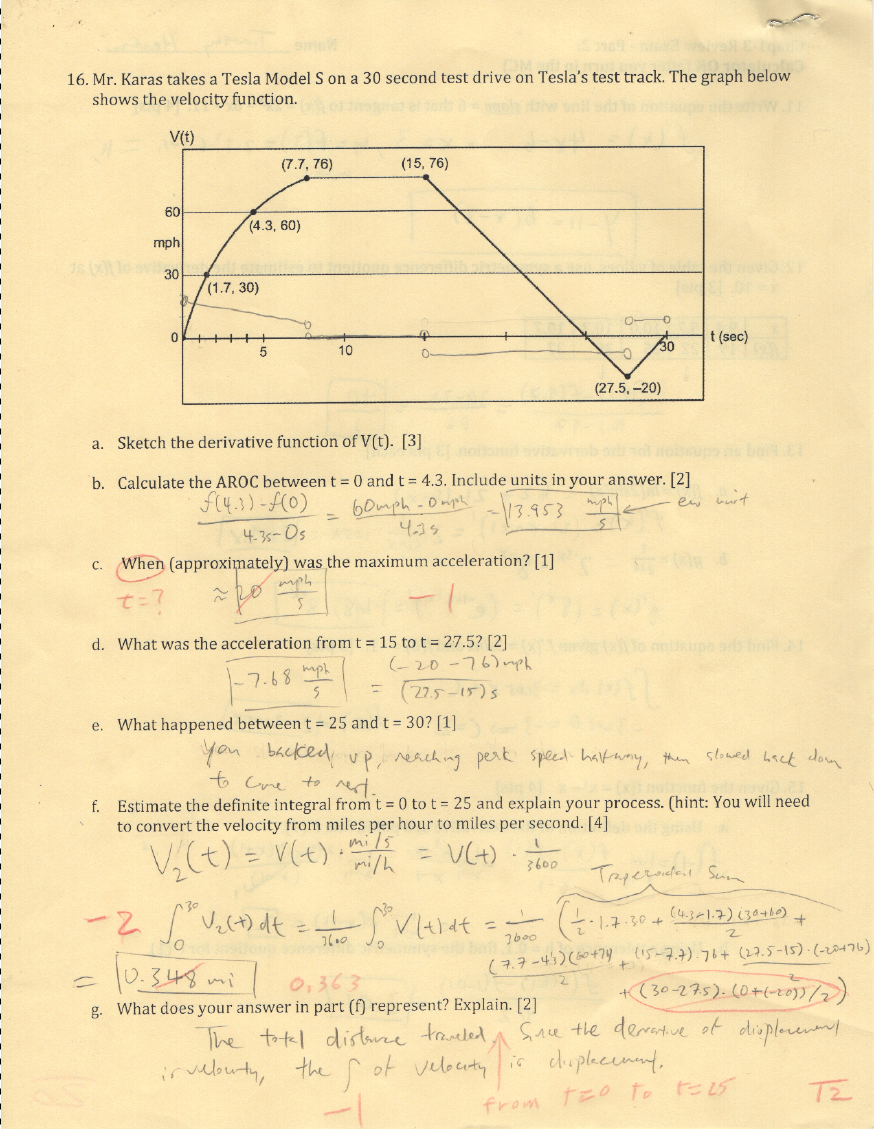 16. Mr. Karas takes a Tesla Model S on a 30 second test drive on Tesla's test track. The graph below
shows the velocity function.
V(t)
(7.7, 76) (15, 76)
60
(4.3, 60)
mph
30
(1.7, 30)
0
5 10 30 t (sec)
(27.5, –20)
a. Sketch the derivative function of V(t). [3]
b. Calculate the AROC between t = 0 and t = 4.3. Include units in your answer. [2]
f(4.3) - f(0) / 4.3s - 0s = 60mph - 0mph / 4.3s = 13.953 mph/s
unit
c. When (approximately) was the maximum acceleration? [1]
t = ? ≈ 20 mph/s -1
d. What was the acceleration from t = 15 to t = 27.5? [2]
-7.68 mph/s = (-20 - 76)mph / (27.5 - 15)s
e. What happened between t = 25 and t = 30? [1]
You backed up, reaching peak speed halfway, then slowed back down
to come to rest.
f. Estimate the definite integral from t = 0 to t = 25 and explain your process. (hint: You will need
to convert the velocity from miles per hour to miles per second. [4]
V₂(t) = V(t) · mi/s / mi/h = V(t) · 1/3600
Trapezoidal Sum
-2 ∫₀³⁰ V₂(t) dt = 1/3600 ∫₀³⁰ V(t) dt = 1/3600 (1/2 · 1.7 · 30 + (4.3-1.7)(30+60)/2 +
(7.7-4.3)(60+76)/2 + (15-7.7)·76 + (27.5-15)·(-20+76)/2
= 0.348 mi 0.363 + (30-27.5)·(0+(-20))/2)
g. What does your answer in part (f) represent? Explain. [2]
The total distance traveled. Since the derivative of displacement
is velocity, the ∫ of velocity is displacement.
-1 from t=0 to t=25